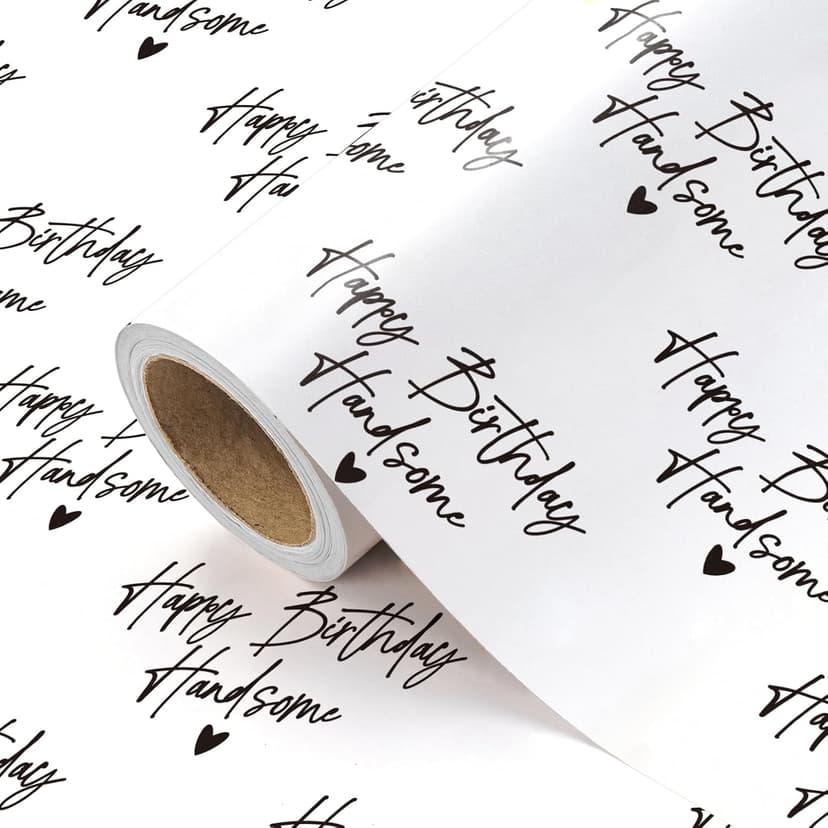 Handsome
Happy Birthday
Handsome
Happy
Ha
some
irthday
Birthday
me
Happy
Handsome
Happy Birthday
Handsome
Happy Birthday
Handsome
Happy B
Handsome
Happy Birthday
Handsome
day
Ha
H